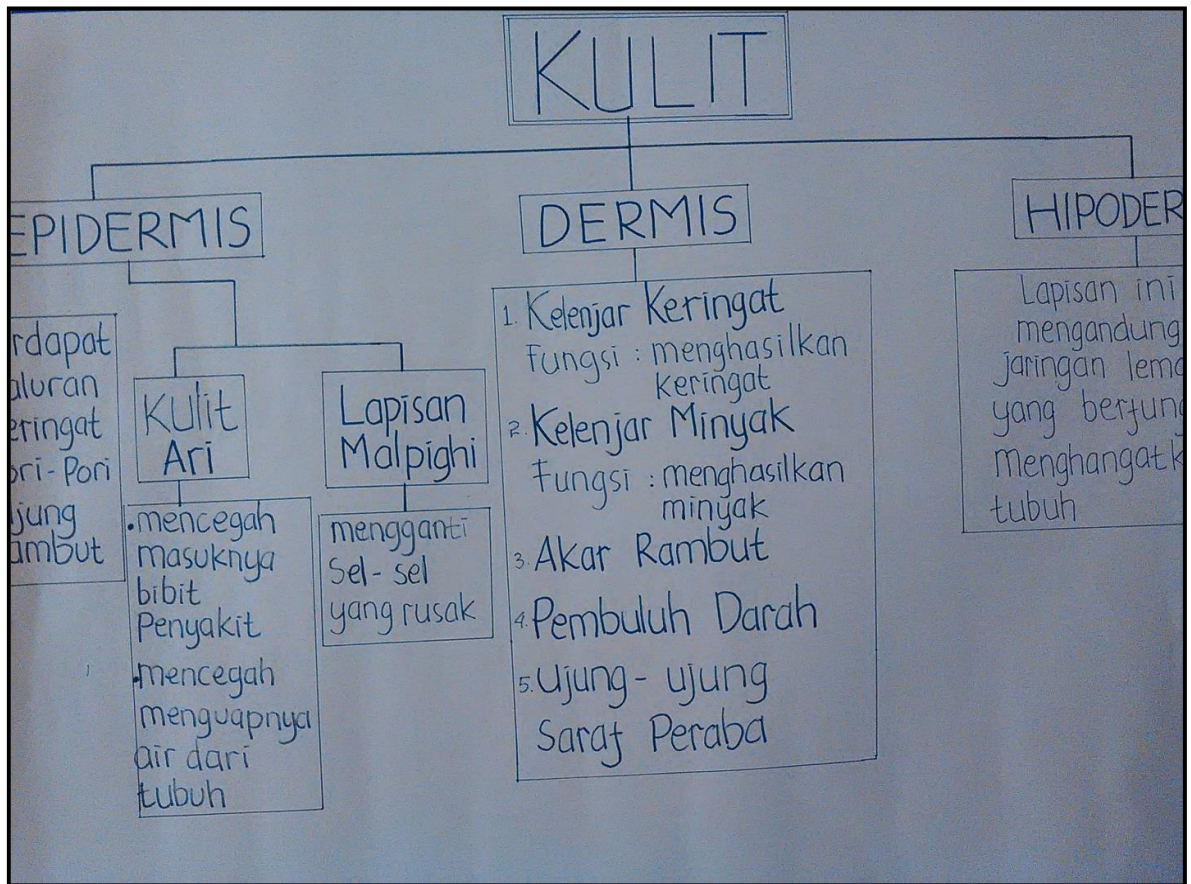 KULIT
EPIDERMIS
rdapat
aluran
eringat
ori-Pori
jung
ambut
Kulit
Ari
•mencegah
masuknya
bibit
Penyakit
•mencegah
menguapnya
air dari
tubuh
Lapisan
Malpighi
mengganti
Sel-sel
yang rusak
DERMIS
1. Kelenjar Keringat
Fungsi : menghasilkan
keringat
2. Kelenjar Minyak
Fungsi : menghasilkan
minyak
3. Akar Rambut
4. Pembuluh Darah
5. Ujung-ujung
Saraf Peraba
HIPODER
Lapisan ini
mengandung
jaringan lema
yang berfung
menghangatk
tubuh